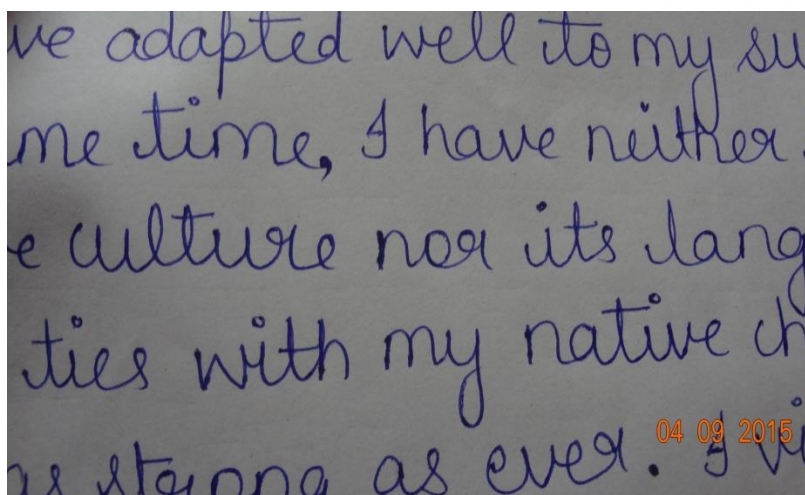 ve adapted well to my su
me time, I have neither
e culture nor its lang
ties with my native ch
as strong as ever. I vi
04 09 2015